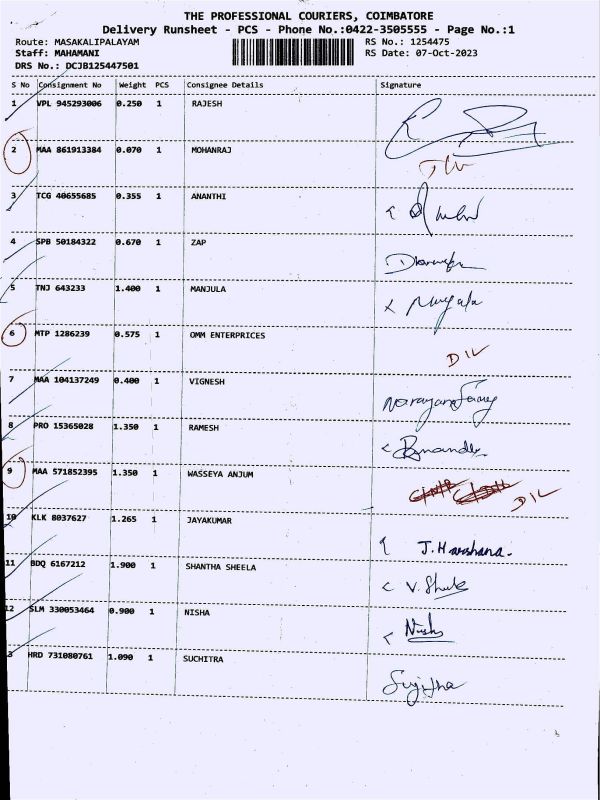 THE PROFESSIONAL COURIERS, COIMBATORE
Delivery Runsheet - PCS - Phone No.:0422-3505555 - Page No.:1
Route: MASAKALIPALAYAM RS No.: 1254475
Staff: MAHAMANI RS Date: 07-Oct-2023
DRS No.: DCJB125447501
S No Consignment No Weight PCS Consignee Details Signature
1 VPL 945293006 0.250 1 RAJESH
2 MAA 861913384 0.070 1 MOHANRAJ
3 TCG 40655685 0.355 1 ANANTHI
4 SPB 50184322 0.670 1 ZAP
5 TNJ 643233 1.400 1 MANJULA
6 MTP 1286239 0.575 1 OMM ENTERPRICES
D/L
7 MAA 104137249 0.400 1 VIGNESH
8 PRO 15365028 1.350 1 RAMESH
9 MAA 571852395 1.350 1 WASSEYA ANJUM
D/L
10 KLK 8037627 1.265 1 JAYAKUMAR
J.Harshana.
11 BDQ 6167212 1.900 1 SHANTHA SHEELA
12 SLM 330053464 0.900 1 NISHA
3 HRD 731080761 1.090 1 SUCHITRA
Sujitha